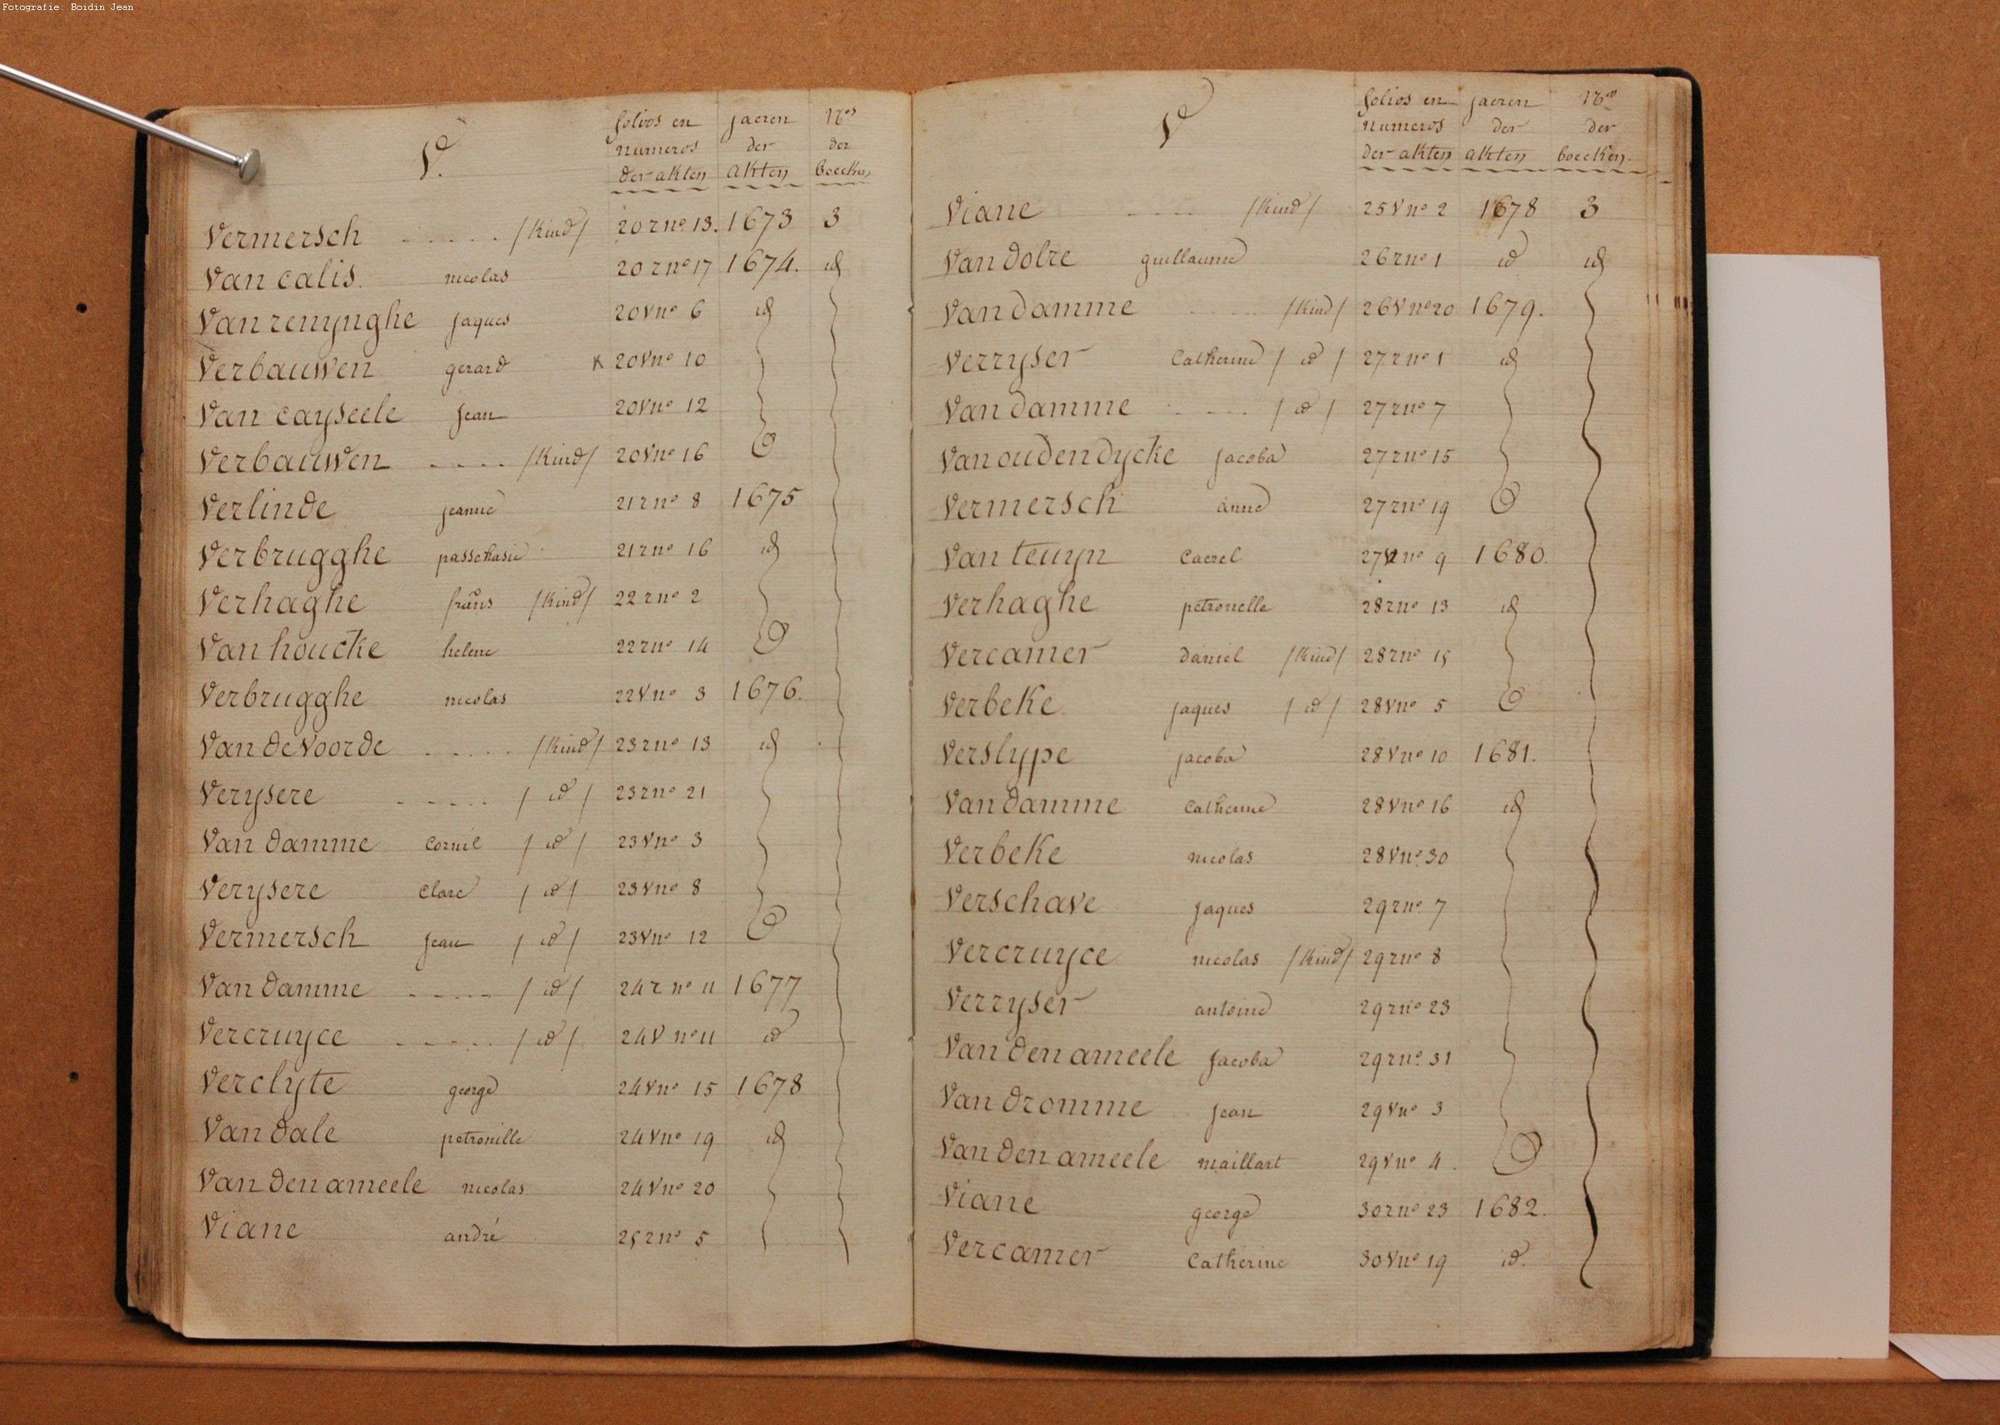 Fotografie: Boidin Jean
V.
folios en jaeren Nos
numeros der der
der akten akten boecken
Vermersch ..... /Kind/ 20 r no 13. 1673 3
Van calis. nicolas 20 r no 17 1674. id
Van remynghe jaques 20 v no 6 id
Verbauwen gerard x 20 v no 10
Van cayseele jean 20 v no 12
Verbauwen .... /Kind/ 20 v no 16
Verlinde jeanne 21 r no 8 1675
Verbrugghe passchasie 21 r no 16 id
Verhaghe frans /Kind/ 22 r no 2
Van houcke helene 22 r no 14
Verbrugghe nicolas 22 v no 3 1676.
Van de Voorde ..... /Kind/ 23 r no 13 id
Verysere ..... / id / 23 r no 21
Van damme cornil / id / 23 v no 3
Verysere clare / id / 23 v no 8
Vermersch jean / id / 23 v no 12
Van damme ..... / id / 24 r no 11 1677
Vercruyce ..... / id / 24 v no 11 id
Verclyte george 24 v no 15 1678
Van dale petronille 24 v no 19 id
Van den ameele nicolas 24 v no 20
Viane andré 25 r no 5
V
folios en jaeren Nos
numeros der der
der akten akten boecken.
Viane .... /Kind/ 25 v no 2 1678 3
Van dolre guillaume 26 r no 1 id id
Van damme .... /Kind/ 26 v no 20 1679.
Verryser Catherine / id / 27 r no 1 id
Van damme ..... / id / 27 r no 7
Van oudendycke jacoba 27 r no 15
Vermersch anne 27 r no 19
Van teuyn Caerel 27 v no 9 1680.
Verhaghe petronelle 28 r no 13 id
Vercamer daniel /Kind/ 28 r no 15
Verbeke jaques / id / 28 v no 5
Verslype jacoba 28 v no 10 1681.
Van damme catherine 28 v no 16 id
Verbeke nicolas 28 v no 30
Verschave jaques 29 r no 7
Vercruyce nicolas /Kind/ 29 r no 8
Verryser antoine 29 r no 23
Van den ameele jacoba 29 r no 31
Van dromme jean 29 v no 3
Van den ameele maillart 29 v no 4.
Viane george 30 r no 23 1682.
Vercamer Catherine 30 v no 19 id.